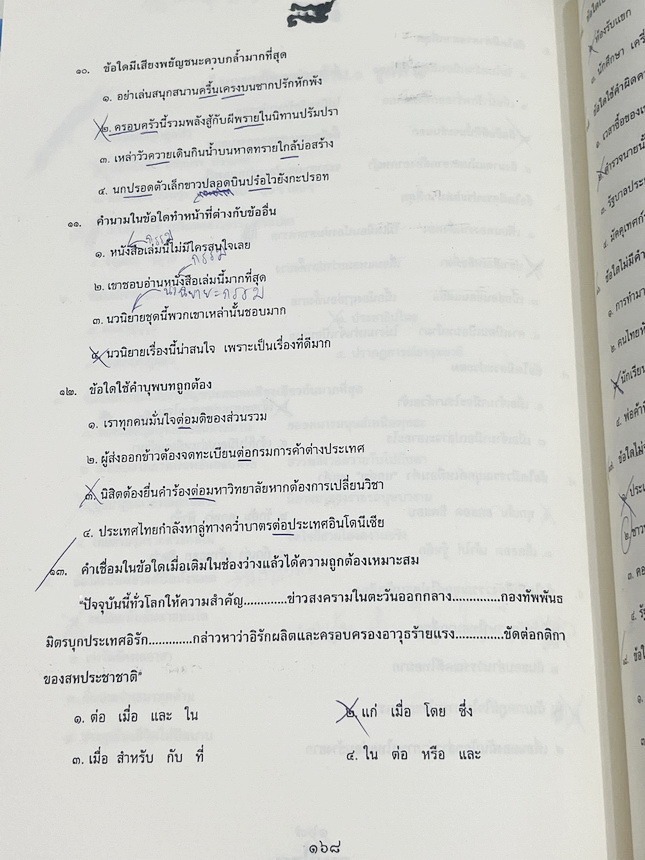 ๑๐. ข้อใดมีเสียงพยัญชนะควบกล้ำมากที่สุด
๑. อย่าเล่นสนุกสนานครื้นเครงบนซากปรักหักพัง
๒. ครอบครัวนี้รวมพลังสู้กับผีพรายในนิทานปรัมปรา
๓. เหล่าวัวควายเดินกินน้ำบนหาดทรายใกล้บ่อสร้าง
๔. นกปรอดตัวเล็กขาวปลอดบินปร๋อไวยังกะปรอท
๑๑. คำนามในข้อใดทำหน้าที่ต่างกับข้ออื่น
กรรม
๑. หนังสือเล่มนี้ไม่มีใครสนใจเลย
กรรม
๒. เขาชอบอ่านหนังสือเล่มนี้มากที่สุด
นวนิยาย=กรรม
๓. นวนิยายชุดนี้พวกเขาเหล่านั้นชอบมาก
๔. นวนิยายเรื่องนี้น่าสนใจ เพราะเป็นเรื่องที่ดีมาก
๑๒. ข้อใดใช้คำบุพบทถูกต้อง
๑. เราทุกคนมั่นใจต่อมติของส่วนรวม
๒. ผู้ส่งออกข้าวต้องจดทะเบียนต่อกรมการค้าต่างประเทศ
๓. นิสิตต้องยื่นคำร้องต่อมหาวิทยาลัยหากต้องการเปลี่ยนวิชา
๔. ประเทศไทยกำลังหาลู่ทางคว่ำบาตรต่อประเทศอินโดนีเซีย
๑๓. คำเชื่อมในข้อใดเมื่อเติมในช่องว่างแล้วได้ความถูกต้องเหมาะสม
"ปัจจุบันนี้ทั่วโลกให้ความสำคัญ............ข่าวสงครามในตะวันออกกลาง.............กองทัพพันธ
มิตรบุกประเทศอิรัก.............กล่าวหาว่าอิรักผลิตและครอบครองอาวุธร้ายแรง.............ขัดต่อกติกา
ของสหประชาชาติ"
๑. ต่อ เมื่อ และ ใน
๒. แก่ เมื่อ โดย ซึ่ง
๓. เมื่อ สำหรับ กับ ที่
๔. ใน ต่อ หรือ และ
๑๖๘